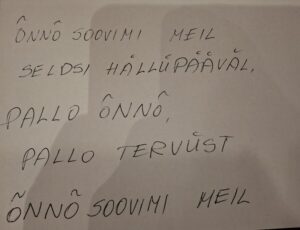 ÕNNÕ SOOVIMI MEIL
SELDSI HÄLLÜPÄÄVÄL,
PALLO ÕNNÕ,
PALLO TERVÜST
ÕNNÕ SOOVIMI MEIL